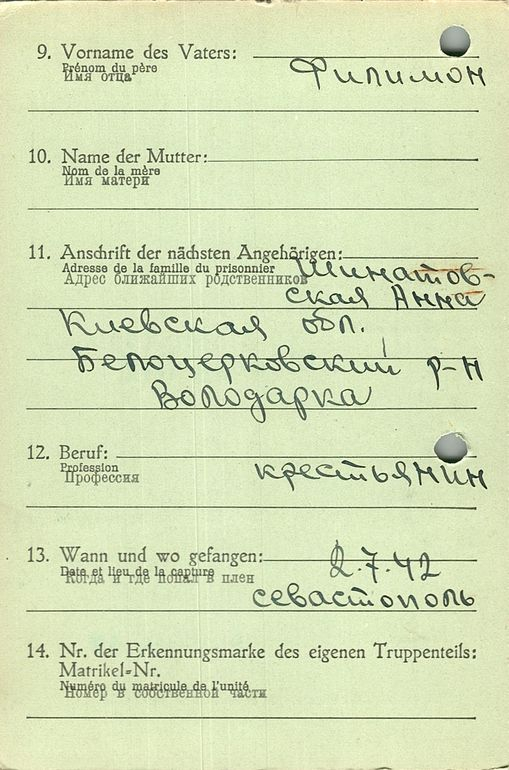 9. Vorname des Vaters:
Prénom du père
Имя отца
Филимон
10. Name der Mutter:
Nom de la mère
Имя матери
11. Anschrift der nächsten Angehörigen:
Adresse de la famille du prisonnier
Адрес ближайших родственников
Шинатов-
ская Анна
Киевская обл.
Белоцерковский р-н
Володарка
12. Beruf:
Profession
Профессия
крестьянин
13. Wann und wo gefangen:
Date et lieu de la capture
Когда и где попал в плен
2.7.42
севастополь
14. Nr. der Erkennungsmarke des eigenen Truppenteils:
Matrikel-Nr.
Numéro du matricule de l'unité
Номер в собственной части